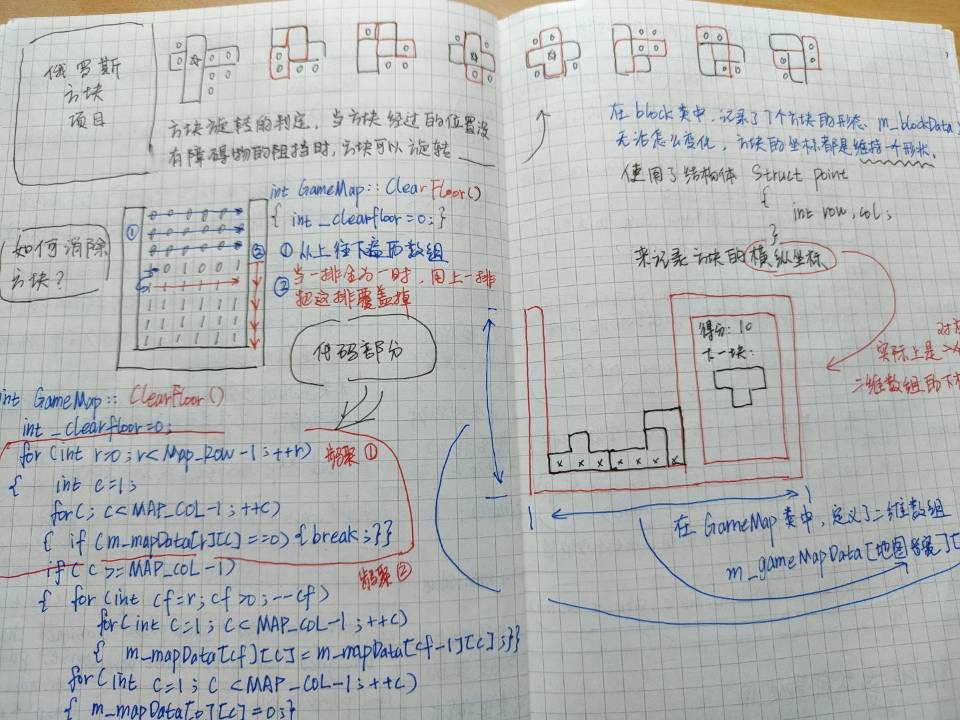 俄罗斯
方块
项目
方块旋转的判定,当方块经过的位置没
有障碍物的阻挡时,方块可以旋转
如何消除
方块?
①
②
0 0 0 0 0 0
0 0 0 0 0 0
0 0 0 0 0 0
1 1 1 1 1 1
1 1 1 1 1 1
1 1 1 1 1 1
int GameMap::ClearFloor()
{ int _clearfloor=0;}
①从上往下遍历数组
②当一排全为一时,用上一排
把这排覆盖掉
代码部分
int GameMap:: ClearFloor()
int _clearfloor=0;
for(int r=0;r<Map_Row-1;++r) 步骤①
{ int c=1;
for(; c<MAP_COL-1;++c)
{ if (m_mapData[r][c]==0){break;}}
if(c>=MAP_COL-1) 步骤②
{ for(int cf=r;cf>0;--cf)
for(int c=1;c<MAP_COL-1;++c)
{ m_mapData[cf][c]=m_mapData[cf-1][c];}}
for(int c=1;c<MAP_COL-1;++c)
{ m_mapData[0][c]=0;}
在block类中,记录了7个方块的形态 m_blockData
无论怎么变化,方块的坐标都是维持一个形状.
使用了结构体 Struct point
{
int row,col;
}
来记录方块的横纵坐标
得分: 10
下一块:
x x x x x x
实际上是
二维数组的下
在GameMap类中,定义了二维数组
m_gameMapData[地图